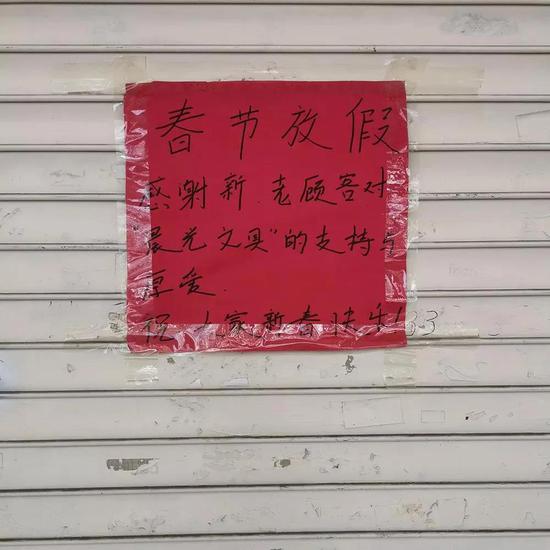 春节放假
感谢新.老顾客对
"晨光文具"的支持与
厚爱.
祝大家新春快乐!